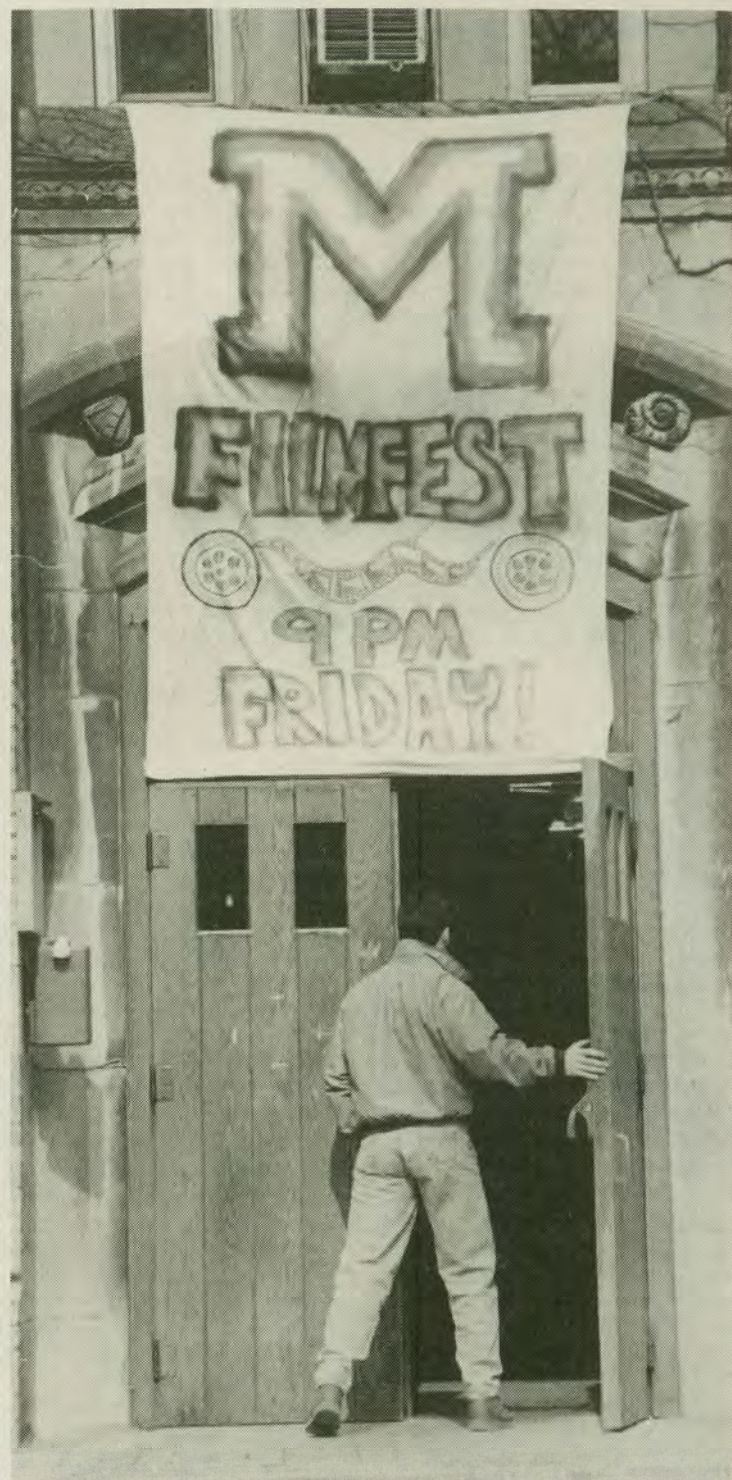 M
FILMFEST
9 PM
FRIDAY!